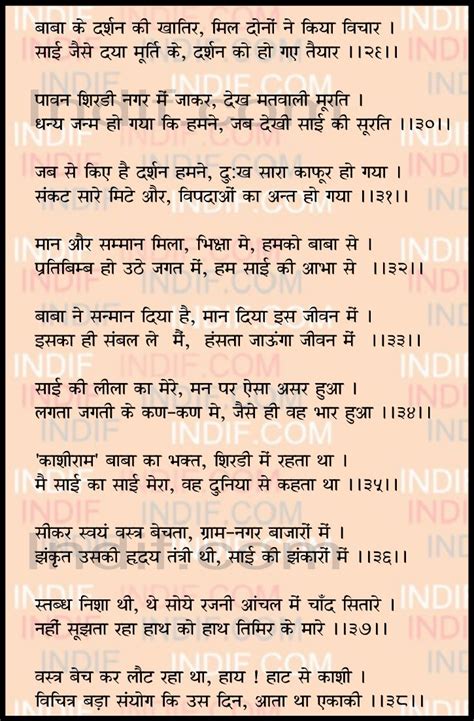 बाबा के दर्शन की खातिर, मिल दोनों ने किया विचार ।
साई जैसे दया मूर्ति के, दर्शन को हो गए तैयार ।।२९।।
पावन शिरडी नगर में जाकर, देख मतवाली मूरति ।
धन्य जन्म हो गया कि हमने, जब देखी साई की सूरति ।।३०।।
जब से किए है दर्शन हमने, दुःख सारा काफूर हो गया ।
संकट सारे मिटे और, विपदाओं का अन्त हो गया ।।३१।।
मान और सम्मान मिला, भिक्षा मे, हमको बाबा से ।
प्रतिबिम्ब हो उठे जगत में, हम साई की आभा से ।।३२।।
बाबा ने सन्मान दिया है, मान दिया इस जीवन में ।
इसका ही संबल ले मैं, हंसता जाऊंगा जीवन में ।।३३।।
साई की लीला का मेरे, मन पर ऐसा असर हुआ ।
लगता जगती के कण-कण मे, जैसे ही वह भार हुआ ।।३४।।
'काशीराम' बाबा का भक्त, शिरडी में रहता था ।
मै साई का साई मेरा, वह दुनिया से कहता था ।।३५।।
सीकर स्वयं वस्त्र बेचता, ग्राम-नगर बाजारों में ।
झंकृत उसकी हृदय तंत्री थी, साई की झंकारों में ।।३६।।
स्तब्ध निशा थी, थे सोये रजनी आंचल में चाँद सितारे ।
नहीं सूझता रहा हाथ को हाथ तिमिर के मारे ।।३७।।
वस्त्र बेच कर लौट रहा था, हाय ! हाट से काशी ।
विचित्र बड़ा संयोग कि उस दिन, आता था एकाकी ।।३८।।
INDIF.COM
Indif.com